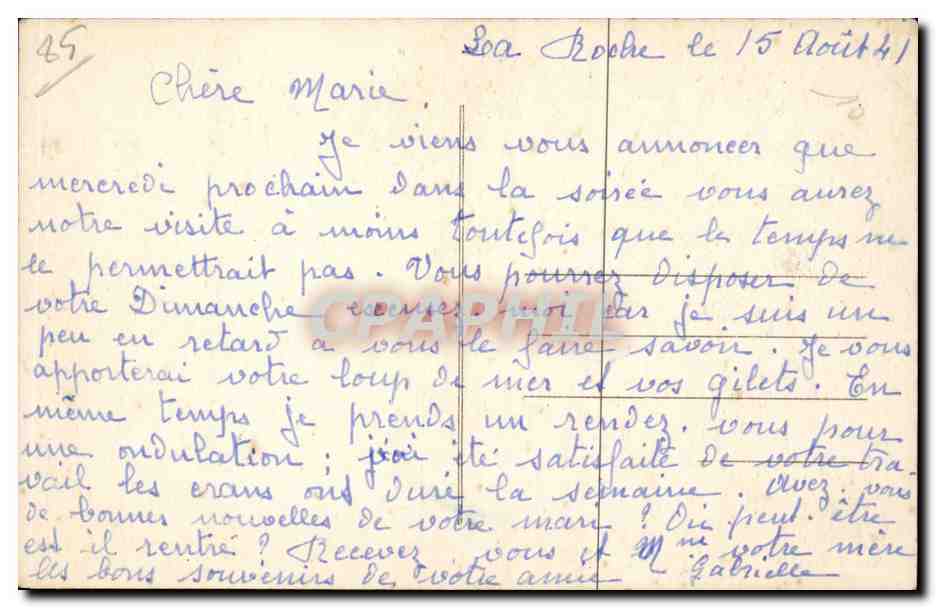 85
La Roche le 15 Août 41
Chère Marie.
Je viens vous annoncer que
mercredi prochain dans la soirée vous aurez
notre visite à moins toutefois que le temps ne
le permettrait pas. Vous pourrez disposer de
votre Dimanche excusez-moi car je suis un
peu en retard à vous le faire savoir. Je vous
apporterai votre loup de mer et vos gilets. En
même temps je prends un rendez-vous pour
une ondulation ; j'ai été satisfaite de votre tra-
vail les crans ont duré la semaine. Avez-vous
de bonnes nouvelles de votre mari ? Ou peut-être
est il rentré ? Recevez vous et Mme votre mère
les bons souvenirs de votre amie Gabrielle
CPAPHIL